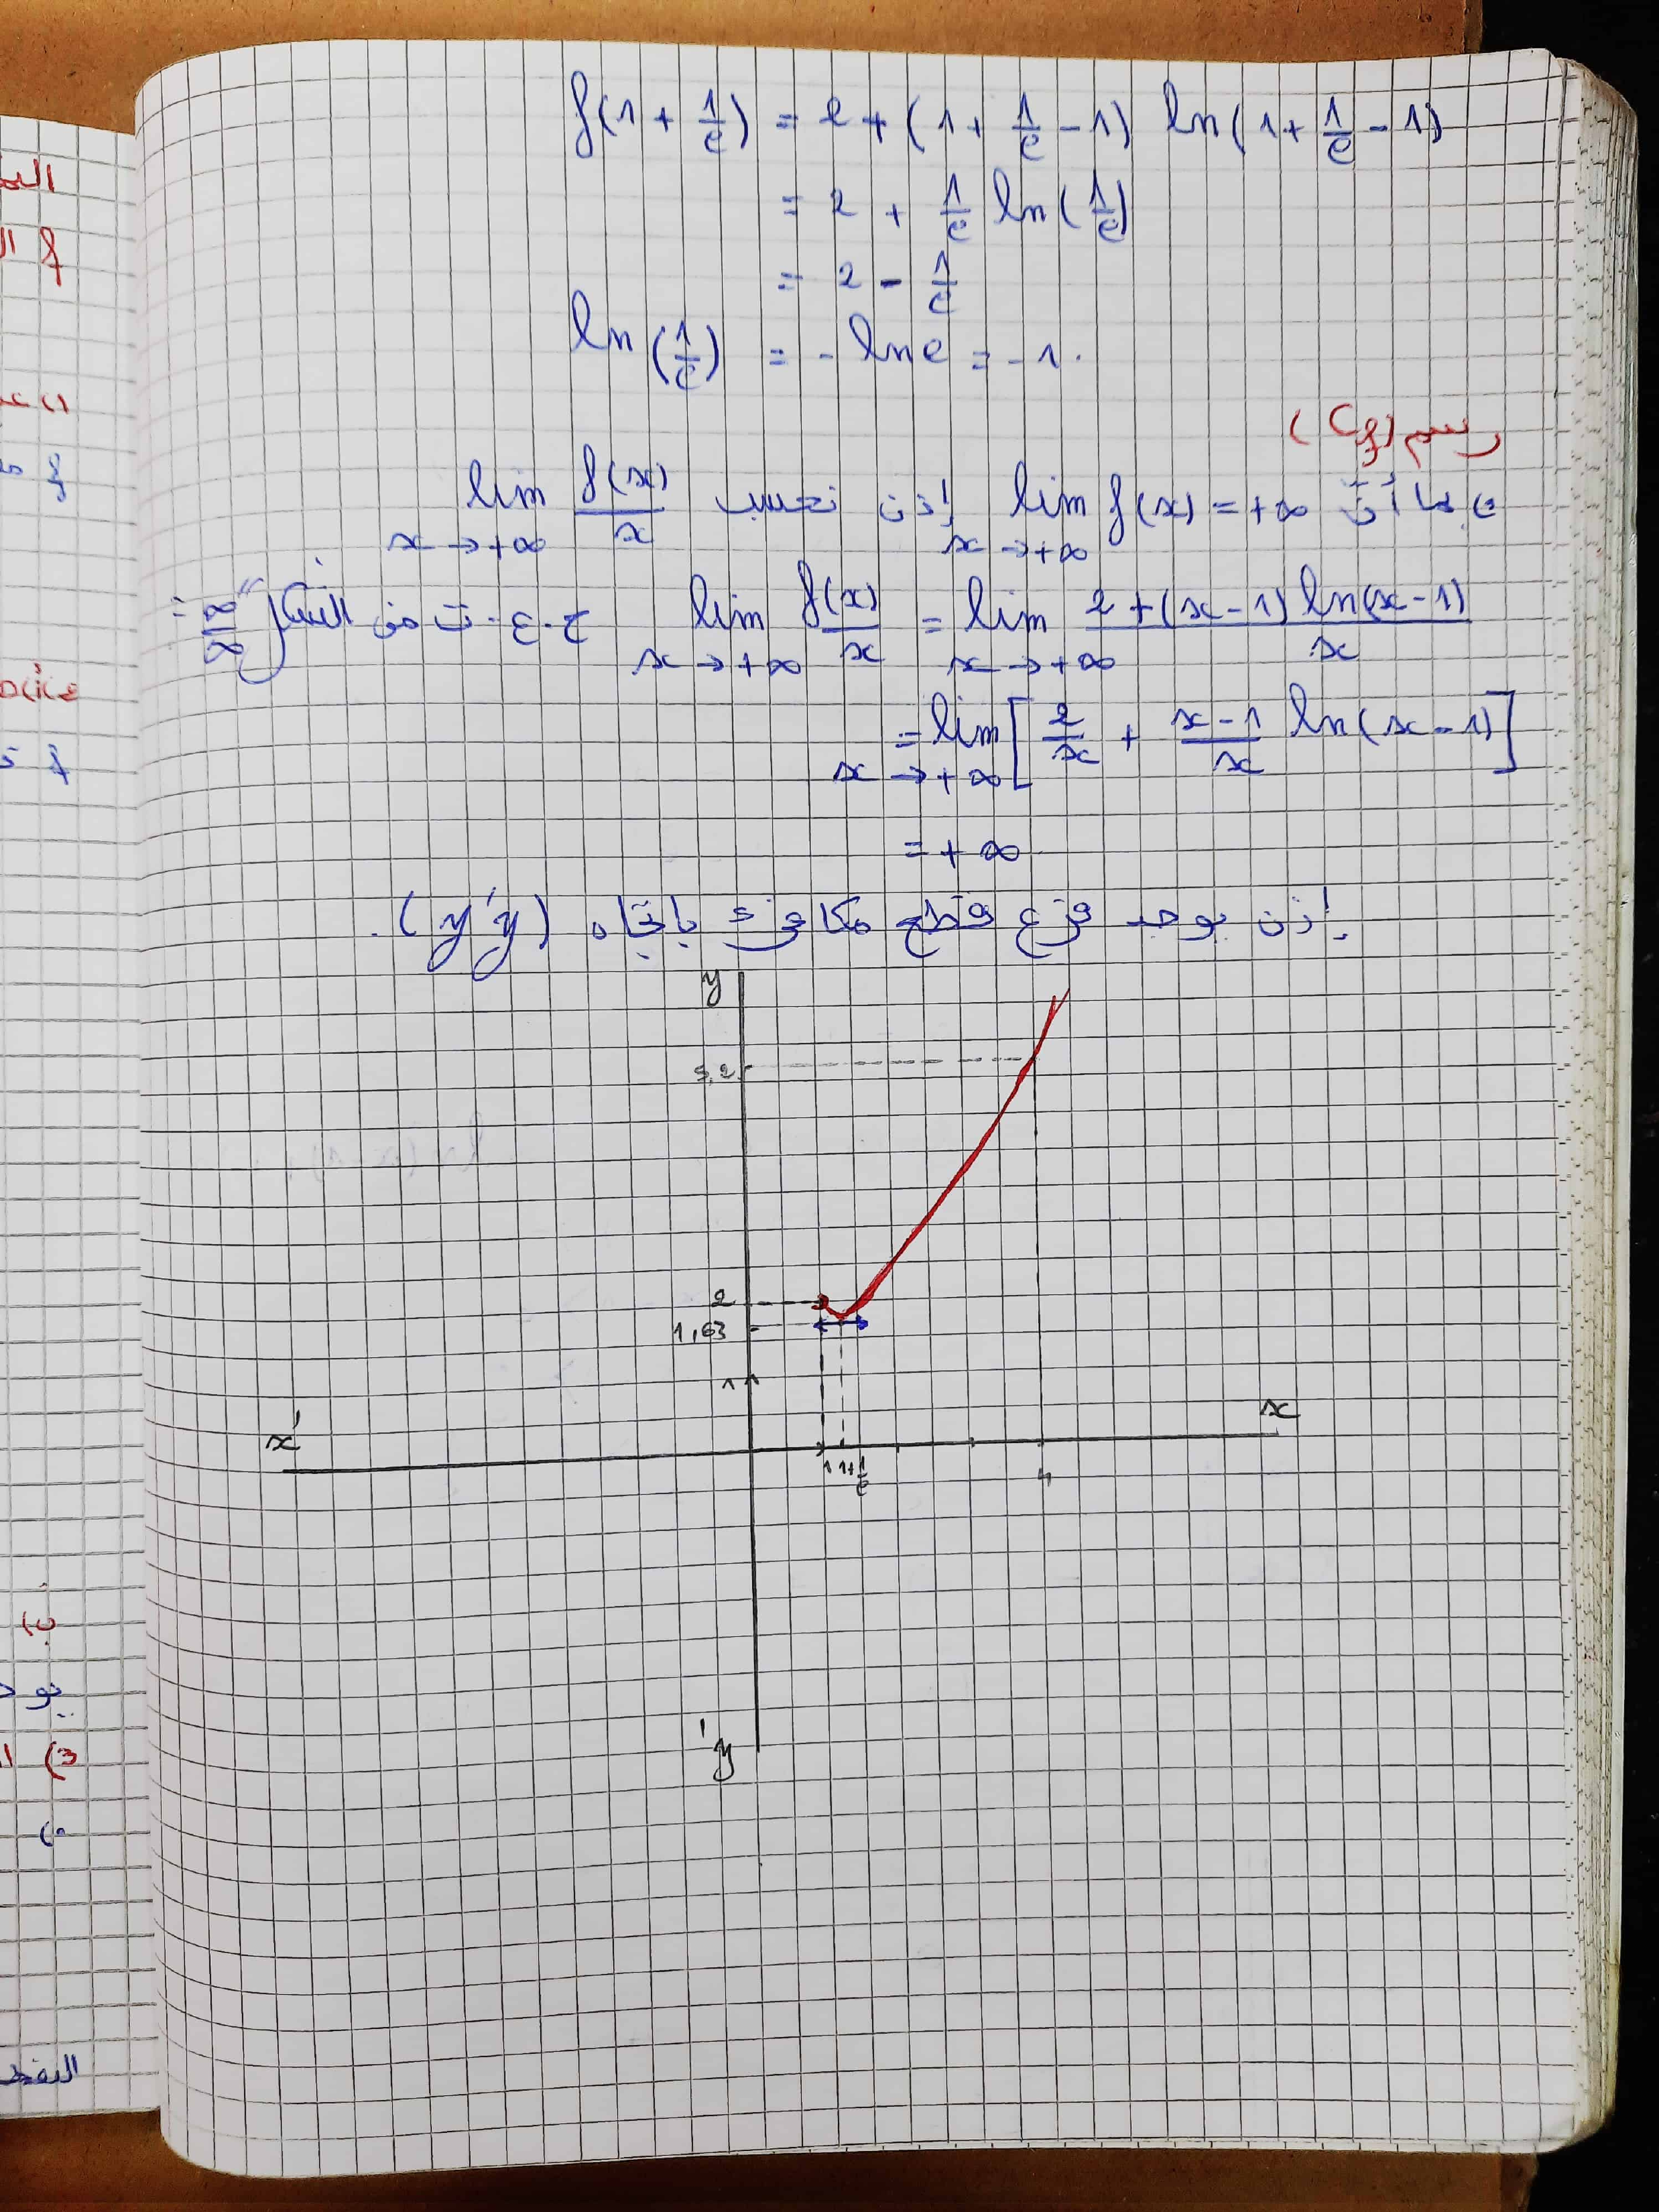 f(1 + 1/e) = 2 + (1 + 1/e - 1) ln(1 + 1/e - 1)
= 2 + 1/e ln(1/e)
= 2 - 1/e
ln(1/e) = - ln e = - 1.
رسم (Cf)
بما أنّ lim f(x) = +∞ إذن نحسب lim f(x)/x
x → +∞ x → +∞
lim f(x)/x = lim 2 + (x - 1) ln(x - 1) / x ح.ع.ت من الشكل "∞/∞" :
x → +∞ x → +∞
= lim [ 2/x + x - 1/x ln(x - 1) ]
x → +∞
= + ∞
إذن يوجد فرع قطع مكافئ باتجاه (y'y).
y
5,2
2
1,63
1
x' x
1 1+1/e 4
y'
f
f
ب)
يوجد
3)
النقط